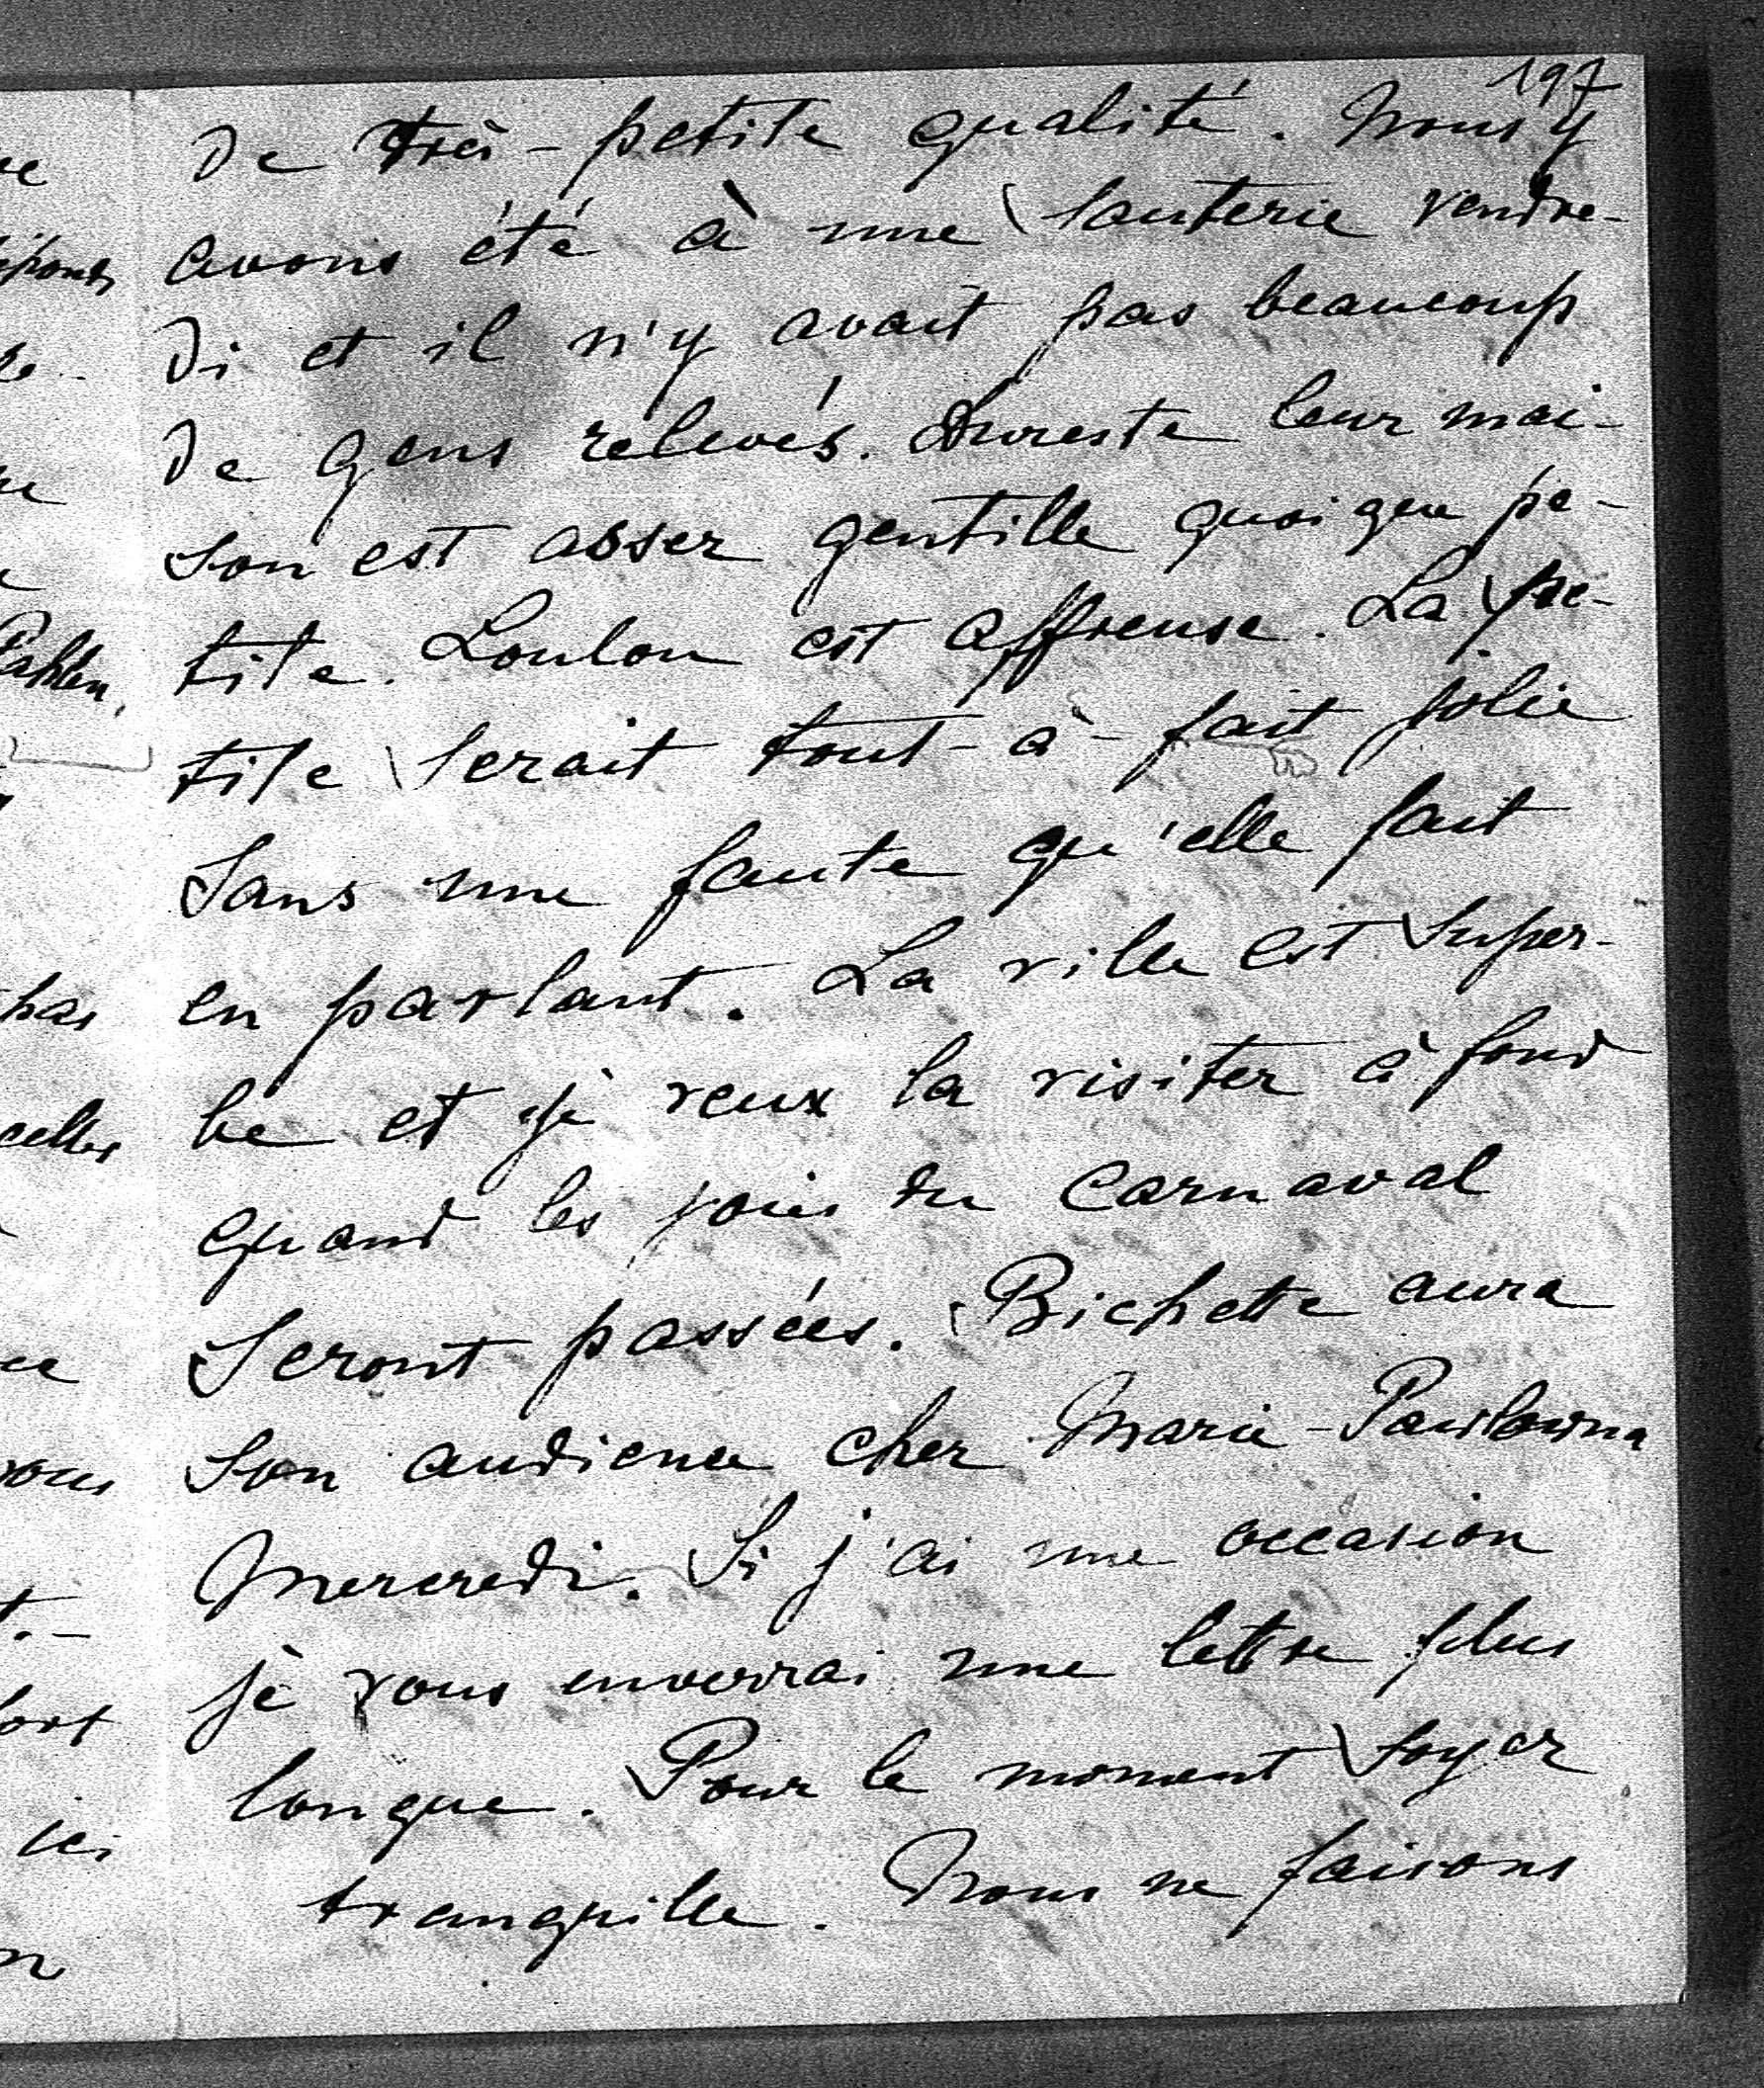 197
de très-petite qualité. Nous y
avons été à une sauterie vendre-
di et il n'y avait pas beaucoup
de gens relevés. Dureste leur mai-
son est assez gentille quoique pe-
tite. Loulou est affreuse. La pe-
tite serait tout-à-fait jolie
sans une faute qu'elle fait
en parlant. La ville est super-
be et je veux la visiter à fond
quand les joies du carnaval
seront passées. Bichette aura
son audience chez Marie-Pawlowna
Mercredi. Si j'ai une occasion
je vous enverrai une lettre plus
longue. Pour le moment soyez
tranquille. Nous ne faisons